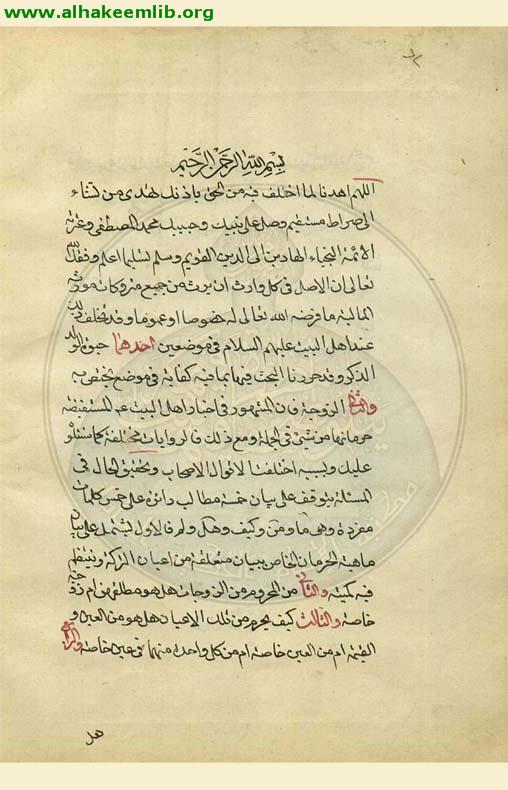 www.alhakeemlib.org
بسم الله الرحمن الرحيم
اللهم اهدنا لما اختلف فيه من الحق باذنك تهدى من تشاء
الى صراط مستقيم وصل على نبيك وحبيبك محمد المصطفى وعترته
الأئمة النجباء الهادين الى الدين القويم وسلم تسليما اعلم وفقك الله
تعالى ان الاصل فى كل وارث ان يرث من جميع متروكات موروثه
المالية ما فرضه الله تعالى له خصوصا او عموما وقد تخلف ذلك
عند اهل البيت عليهم السلام فى موضعين احدهما حبوة الولد
الذكر وقد حررنا البحث فيها بما فيه كفاية فى موضع يختص به
والثانى الزوجة فان المشهور فى اخبار اهل البيت عم المستفيضة
حرمانها من شئ فى الجملة ومع ذلك فالروايات مختلفة كما ستتلو
عليك وبسببه اختلفت الاقوال الاصحاب وتحقيق الحال فى
المسئلة يتوقف على بيان خمسة مطالب دائرة على خمس كلمات
مفردة وهى ما ومن وكيف وهل ولم فالاول يشتمل على بيان
ماهية الحرمان الخاص ببيان متعلقة من اعيان التركة وينتظم
فيه كميته والثانى من المحروم من الزوجات هل هو مطلق ام زوجة
خاصة والثالث كيف يحرم من تلك الاعيان هل هو من العين و
القيمة ام من العين خاصة ام من كل واحد منهما فى عين خاصة والرابع
هل